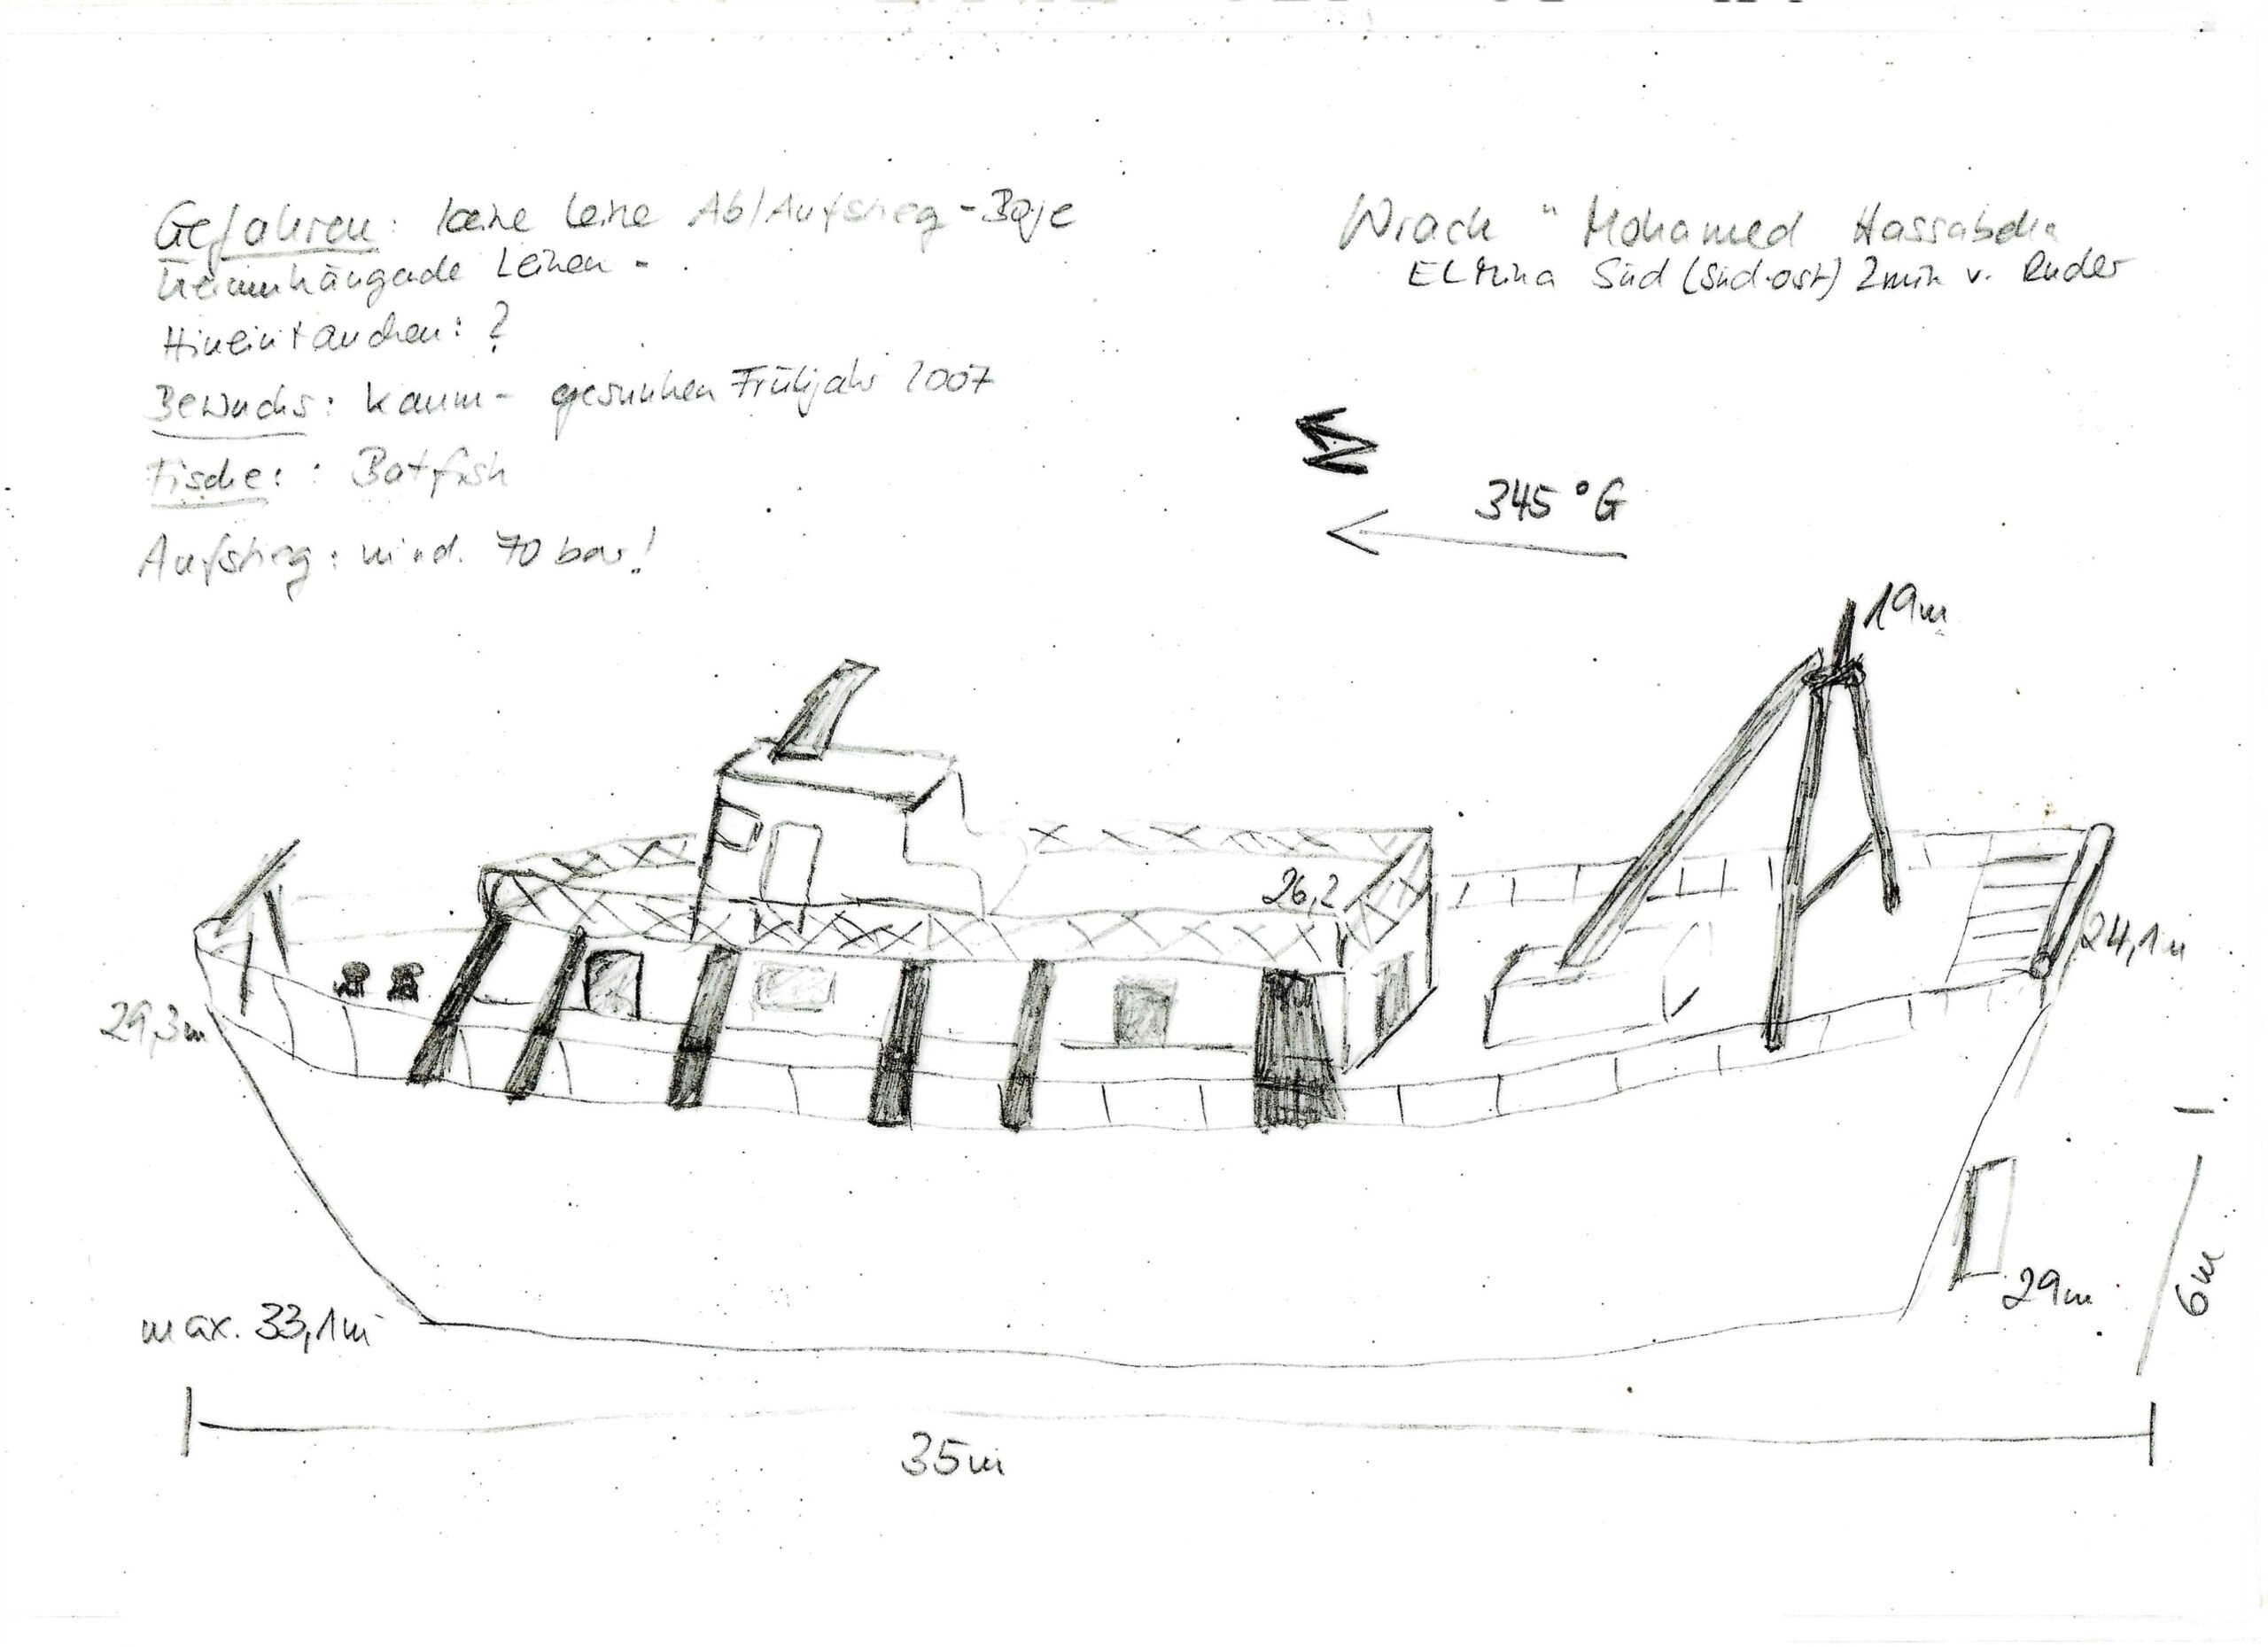 Gefahren: keine Leine Ab/Aufstieg-Boje
herumhängende Leinen -
Hineintauchen: ?
Bewuchs: kaum - gesunken Frühjahr 2007
Fische: : Batfish
Aufstieg: mind. 70 bar!
Wrack "Mohamed
El Mina Süd (Süd-ost) 2min v. Ruder
N
345°G
19m
26,2
24,1m
29,3m
29m
6m
max. 33,1m
35m